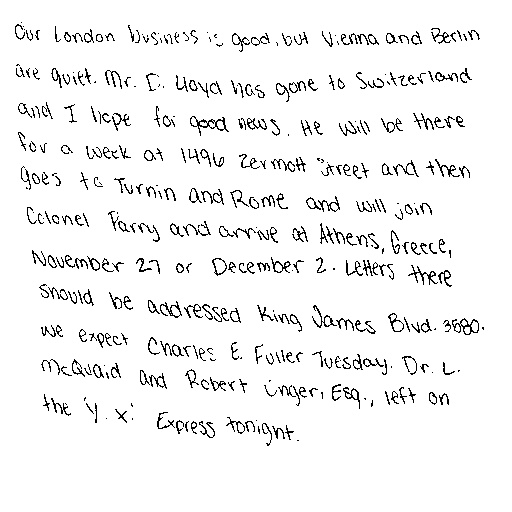 Our London business is good, but Vienna and Berlin
are quiet. Mr. D. Lloyd has gone to Switzerland
and I hope for good news. He will be there
for a week at 1496 Zermott Street and then
goes to Turnin and Rome and will join
Colonel Parry and arrive at Athens, Greece,
November 27 or December 2. Letters there
should be addressed King James Blvd. 3580.
we expect Charles E. Fuller Tuesday. Dr. L.
McQuaid and Robert Unger, Esq., left on
the 'Y. X.' Express tonight.